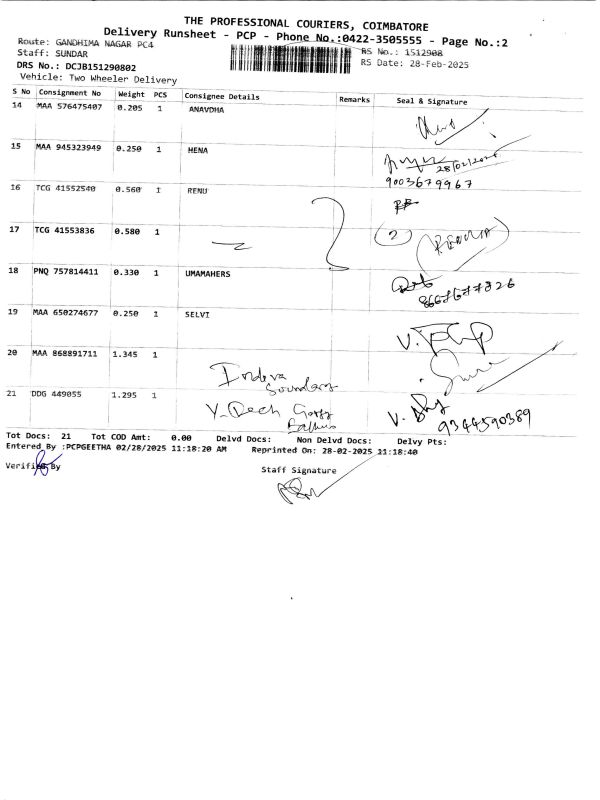 THE PROFESSIONAL COURIERS, COIMBATORE
Delivery Runsheet - PCP - Phone No.:0422-3505555 - Page No.:2
Route: GANDHIMA NAGAR PC4 RS No.: 1512908
Staff: SUNDAR RS Date: 28-Feb-2025
DRS No.: DCJB151290802
Vehicle: Two Wheeler Delivery
S No Consignment No Weight PCS Consignee Details Remarks Seal & Signature
14 MAA 576475407 0.205 1 ANAVDHA
15 MAA 945323949 0.250 1 HENA
28/02/2025
9003679967
16 TCG 41552540 0.560 1 RENU
17 TCG 41553836 0.580 1 2
18 PNQ 757814411 0.330 1 UMAMAHERS
19 MAA 650274677 0.250 1 SELVI
20 MAA 868891711 1.345 1
21 DDG 449055 1.295 1
9344590389
Tot Docs: 21 Tot COD Amt: 0.00 Delvd Docs: Non Delvd Docs: Delvy Pts:
Entered By :PCPGEETHA 02/28/2025 11:18:20 AM Reprinted On: 28-02-2025 11:18:40
Verified By
Staff Signature